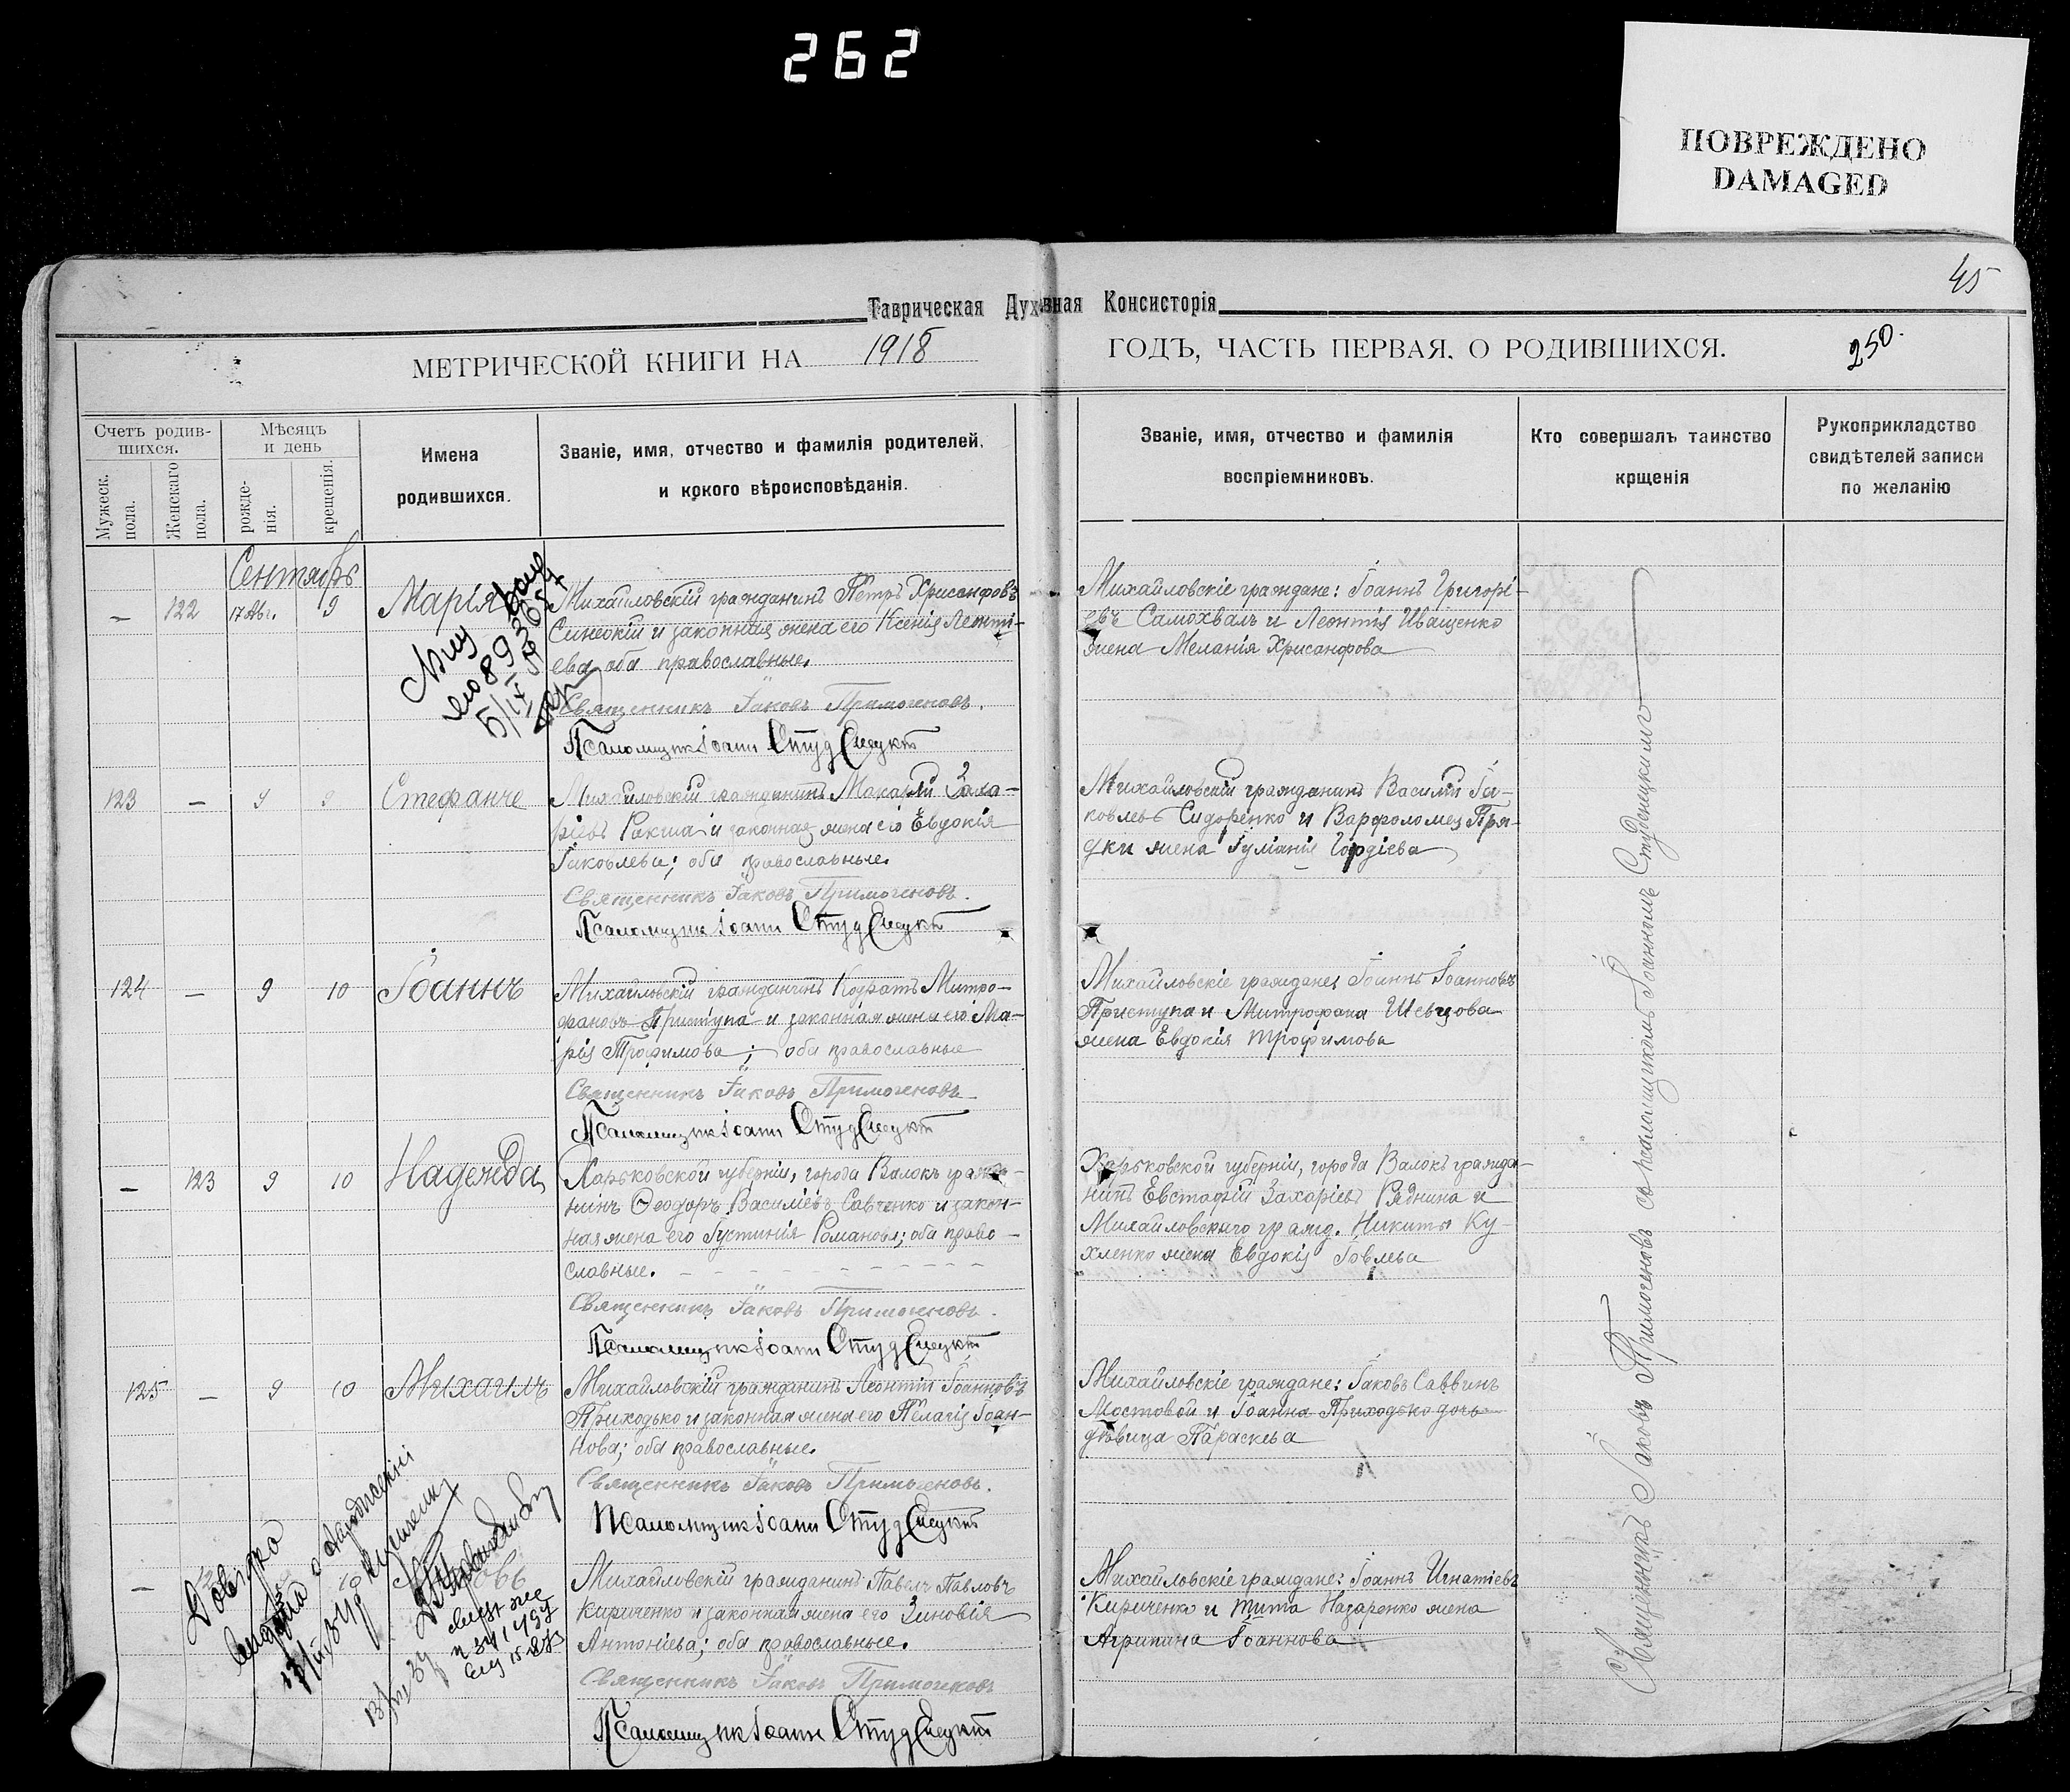 262
ПОВРЕЖДЕНО
DAMAGED
45
Таврическая Духовная Консисторія
МЕТРИЧЕСКОЙ КНИГИ НА 1918 ГОДЪ, ЧАСТЬ ПЕРВАЯ. О РОДИВШИХСЯ.
250.
Счетъ родив-
шихся.
Мужеск.
пола.
Женскаго
пола.
Мѣсяцъ
и день
рожде-
нія.
крещенія.
Имена
родившихся.
Званіе, имя, отчество и фамилія родителей,
и кокого вѣроисповѣданія.
Званіе, имя, отчество и фамилія
воспріемниковъ.
Кто совершалъ таинство
крщенія
Рукоприкладство
свидѣтелей записи
по желанію
Сентябрь
— 122 17 Авг. 9 Марія
Михайловскій гражданинъ Петръ Хрисанфовъ
Синеокій и законная жена его Ксенія Леонті-
ева оба православные.
Священникъ Іаковъ Примогеновъ.
Псаломщикъ Іоаннъ Студенецкій
Михайловскіе граждане: Іоаннъ Григорі-
евъ Самохвалъ и Леонтія Иващенко
жена Меланія Хрисанфова
123 — 9 9 Стефанъ
Михайловскій гражданинъ Макарій Заха-
ріевъ Ракша и законная жена его Евдокія
Іаковлева; оба православные.
Священникъ Іаковъ Примогеновъ.
Псаломщикъ Іоаннъ Студенецкій
Михайловскій гражданинъ Василій Іа-
ковлевъ Сидоренко и Варфоломея Пря-
дки жена Іуліанія Гордіева
124 — 9 10 Іоаннъ
Михайловскій гражданинъ Кодратъ Митро-
фановъ Приступа и законная жена его Ма-
рія Трофимова; оба православные
Священникъ Іаковъ Примогеновъ
Псаломщикъ Іоаннъ Студенецкій
Михайловскіе граждане: Іоаннъ Іоанновъ
Приступа и Митрофана Шевцова
жена Евдокія Трофимова
— 123 9 10 Надежда
Харьковской губерніи, города Валокъ гражда-
нинъ Ѳеодоръ Василіевъ Савченко и закон-
ная жена его Іустинія Романова; оба право-
славные.
Священникъ Іаковъ Примогеновъ.
Псаломщикъ Іоаннъ Студенецкій
Харьковской губерніи, города Валокъ гражда-
нинъ Евстафій Захаріевъ Ряднина и
Михайловскаго гражд. Никиты Ку-
хленко жена Евдокія Іовлева
125 — 9 10 Михаилъ
Михайловскій гражданинъ Леонтій Іоанновъ
Приходько и законная жена его Пелагія Іоан-
нова; оба православные.
Священникъ Іаковъ Примогеновъ.
Псаломщикъ Іоаннъ Студенецкій
Михайловскіе граждане: Іаковъ Саввинъ
Мостовой и Іоанна Приходько дочь
дѣвица Параскева
Довідка
— 10
Михайловскій гражданинъ Павелъ Павловъ
Кириченко и законная жена его Зиновія
Антоніева; оба православные.
Священникъ Іаковъ Примогеновъ
Псаломщикъ Іоаннъ Студенецкій
Михайловскіе граждане: Іоаннъ Игнатіевъ
Кириченко и Тита Назаренко жена
Агрипина Іоаннова
Священникъ Іаковъ Примогеновъ съ псаломщикомъ Іоанномъ Студенецкимъ